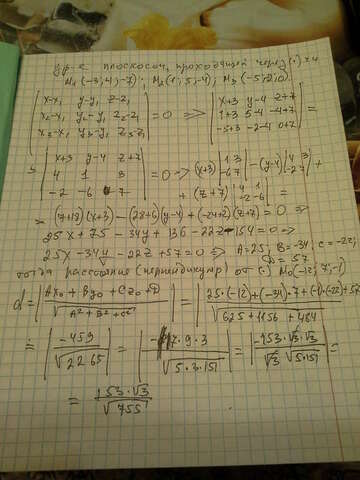 ур-е плоскости, проходящей через (·) x 4
M₁(-3; 4; -7); M₂(1; 5; -4); M₃(-5; -2; 0)
| x-x₁ y-y₁ z-z₁ | | x+3 y-4 z+7 |
| x₂-x₁ y₂-y₁ z₂-z₁ | = 0 => | 1+3 5-4 -4+7 | =
| x₃-x₁ y₃-y₁ z₃-z₁ | | -5+3 -2-4 0+7 |
| x+3 y-4 z+7 |
| 4 1 3 | = 0 -> (x+3) | 1 3; -6 7 | - (y-4) | 4 3; -2 7 | +
| -2 -6 7 | + (z+7) | 4 1; -2 -6 | =
= (7+18)(x+3) - (28+6)(y-4) + (-24+2)(z+7) = 0 =>
25x + 75 - 34y + 136 - 22z - 154 = 0 =>
25x - 34y - 22z + 57 = 0 => A = 25; B = -34; C = -22; D = 57
тогда расстояние (перпендикуляр) от (·) M₀(-12; 7; -1)
d = | (Ax₀ + By₀ + Cz₀ + D) / √(A² + B² + C²) | = | (25·(-12) + (-34)·7 + (-1)·(-22) + 57) / √(625 + 1156 + 484) |
= | -459 / √2265 | = | 9·3 / √(5·3·151) | = | -153·√3·√3 / (√3 √(5·151)) | =
= 153·√3 / √755